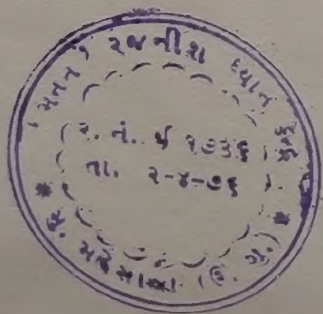 ' મનન ' રજનીશ ધ્યાન કેન્દ્ર
૨. નં. ૫ ૧૭૩૬
તા. ૨-૪-૭૬
* મુ. મહેસાણા (ઉ. ગુ.) *